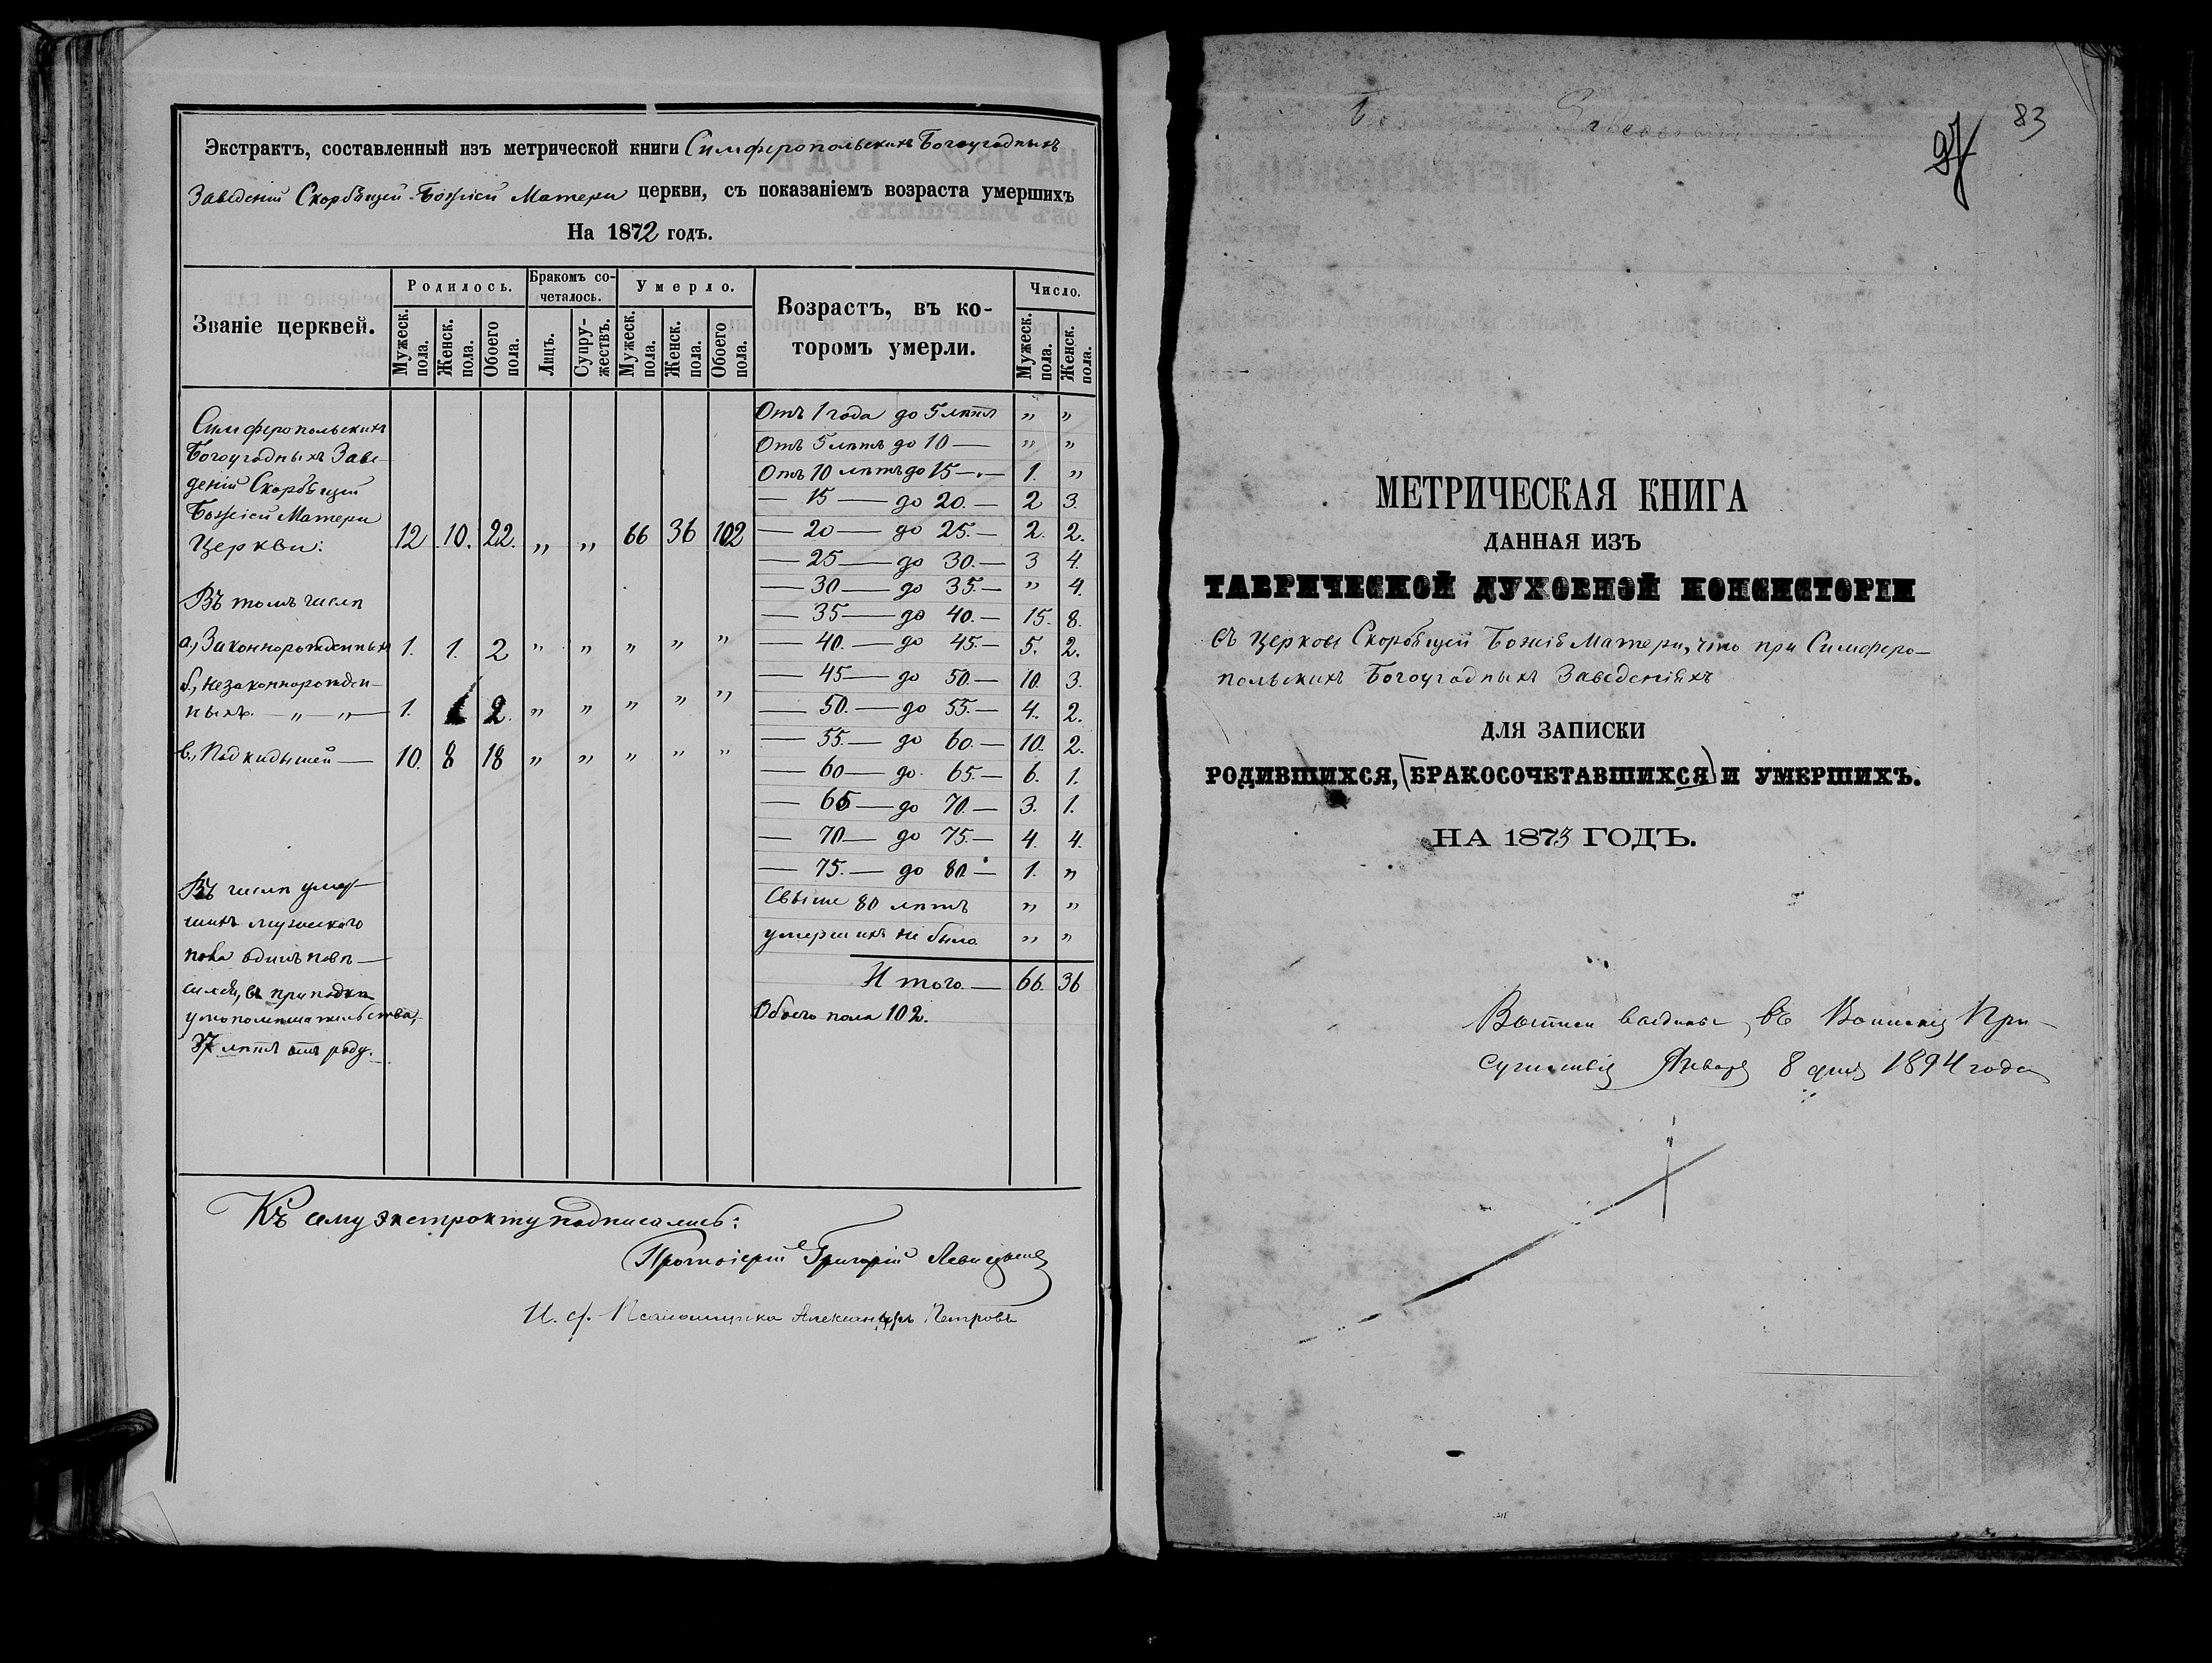 Экстрактъ, составленный изъ метрической книги Симферопольскихъ Богоугодныхъ
Заведеній Скорбящей Божіей Матери церкви, съ показаніемъ возраста умершихъ
На 1872 годъ.
Званіе церквей.
Родилось.
Бракомъ со-
четалось.
Умерло.
Возрастъ, въ ко-
торомъ умерли.
Число.
Мужеск. пола.
Женск. пола.
Обоего пола.
Лицъ.
Супру-
жествъ.
Мужеск. пола.
Женск. пола.
Обоего пола.
Мужеск. пола.
Женск. пола.
Симферопольскихъ
Богоугодныхъ Заве-
деній Скорбящей
Божіей Матери
Церкви: 12 10. 22. „ „ 66 36 102
Въ томъ числѣ
а, Законнорожденныхъ 1. 1. 2 „ „ „ „ „
б, незаконнорожден-
ныхъ. — „ — „ — 1. 1 2. „ „ „ „ „
в, Подкидышей — 10. 8 18 „ „ „ „ „
Въ числѣ умер-
шихъ мужескаго
пола одинъ повѣ-
сился, въ припадкѣ
умопомѣшательства,
37 лѣтъ отъ роду.
Отъ 1 года до 5 лѣтъ „ „
Отъ 5 лѣтъ до 10 — „ „
Отъ 10 лѣтъ до 15 — „ — 1. „
— 15 — до 20. — 2 3.
— 20 — до 25. — 2. 2.
— 25 — до 30. — 3 4.
— 30 — до 35. — „ 4.
— 35 — до 40. — 15. 8.
— 40. — до 45. — 5. 2.
— 45 — до 50. — 10. 3.
— 50. — до 55. — 4. 2.
— 55. — до 60. — 10. 2.
— 60 — до 65. — 6. 1.
— 65 — до 70. — 3. 1.
— 70 — до 75. — 4. 4.
— 75. — до 80. — 1. „
Свыше 80 лѣтъ „ „
умершихъ не было „ „
Итого. — 66. 36
Обоего пола 102.
Къ сему экстракту подписались:
Протоіерей Григорій Левицкій
И. д. Псаломщика Александръ Петровъ
83
МЕТРИЧЕСКАЯ КНИГА
ДАННАЯ ИЗЪ
ТАВРИЧЕСКОЙ ДУХОВНОЙ КОНСИСТОРІИ
въ Церковь Скорбящей Божія Матери, что при Симферо-
польскихъ Богоугодныхъ Заведеніяхъ
ДЛЯ ЗАПИСКИ
РОДИВШИХСЯ, [БРАКОСОЧЕТАВШИХСЯ] И УМЕРШИХЪ.
НА 1873 ГОДЪ.
Выписи выданы въ Воинскія При-
сутствія Января 8 дня 1894 года